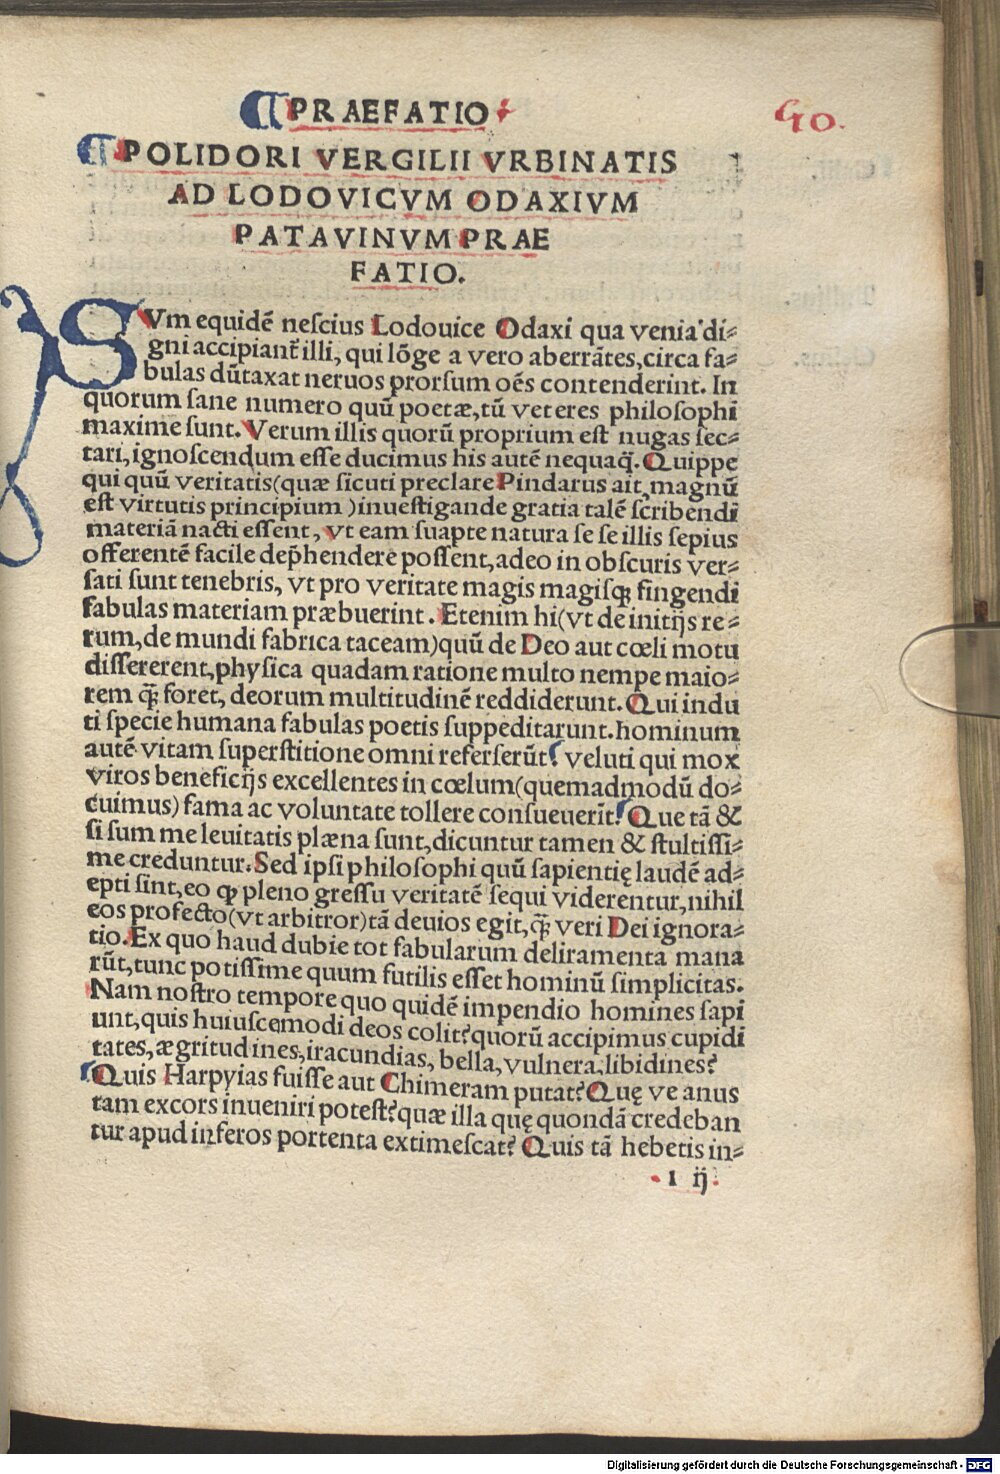 PRAEFATIO
POLIDORI VERGILII VRBINATIS
AD LODOVICVM ODAXIVM
PATAVINVM PRAE
FATIO.
SVm equidē neſcius Lodouice Odaxi qua venia di⸗
gni accipiant̄ illi, qui lōge a vero aberrātes, circa fa⸗
bulas dūtaxat neruos prorſum oēs contenderint. In
quorum ſane numero quū poetæ, tū veteres philoſophi
maxime ſunt. Verum illis quorū proprium eſt nugas ſec⸗
tari, ignoſcendum eſſe ducimus his autē nequaq̄. Quippe
qui quū veritatis(quæ ſicuti preclare Pindarus ait, magnū
eſt virtutis principium )inueſtigande gratia talē ſcribendi
materiā nacti eſſent, vt eam ſuapte natura ſe ſe illis ſepius
offerentē facile dep̄hendere poſſent, adeo in obſcuris ver⸗
ſati ſunt tenebris, vt pro veritate magis magiſqꝫ fingendi
fabulas materiam præbuerint. Etenim hi(vt de initijs re⸗
rum, de mundi fabrica taceam)quū de Deo aut cœli motu
diſſererent, phyſica quadam ratione multo nempe maio⸗
rem q̄ꝫ foret, deorum multitudinē reddiderunt. Qui indu
ti ſpecie humana fabulas poetis ſuppeditarunt. hominum
autē vitam ſuperſtitione omni referſerūt: veluti qui mox
viros beneficijs excellentes in cœlum(quemadmodū do⸗
cuimus) fama ac voluntate tollere conſueuerīt: Que tā &
ſi ſum me leuitatis plæna ſunt, dicuntur tamen & ſtultiſſi⸗
me creduntur. Sed ipſi philoſophi quū ſapientię laudē ad⸗
epti ſint, eo ꝙ pleno greſſu veritatē ſequi viderentur, nihil
eos profecto(vt arbitror)tā deuios egit, q̄ꝫ veri Dei ignora⸗
tio. Ex quo haud dubie tot fabularum deliramenta mana
rūt, tunc potiſſime quum futilis eſſet hominū ſimplicitas.
Nam noſtro tempore quo quidē impendio homines ſapi
unt, quis huiuſcemodi deos colit? quorū accipimus cupidi
tates, ægritudines, iracundias, bella, vulnera, libidines?
Quis Harpyias fuiſſe aut Chimeram putat? Quę ve anus
tam excors inueniri poteſt? quæ illa quę quondā credeban
tur apud inferos portenta extimeſcat? Quis tā hebetis in⸗
1 ij
Digitalisierung gefördert durch die Deutsche Forschungsgemeinschaft - DFG